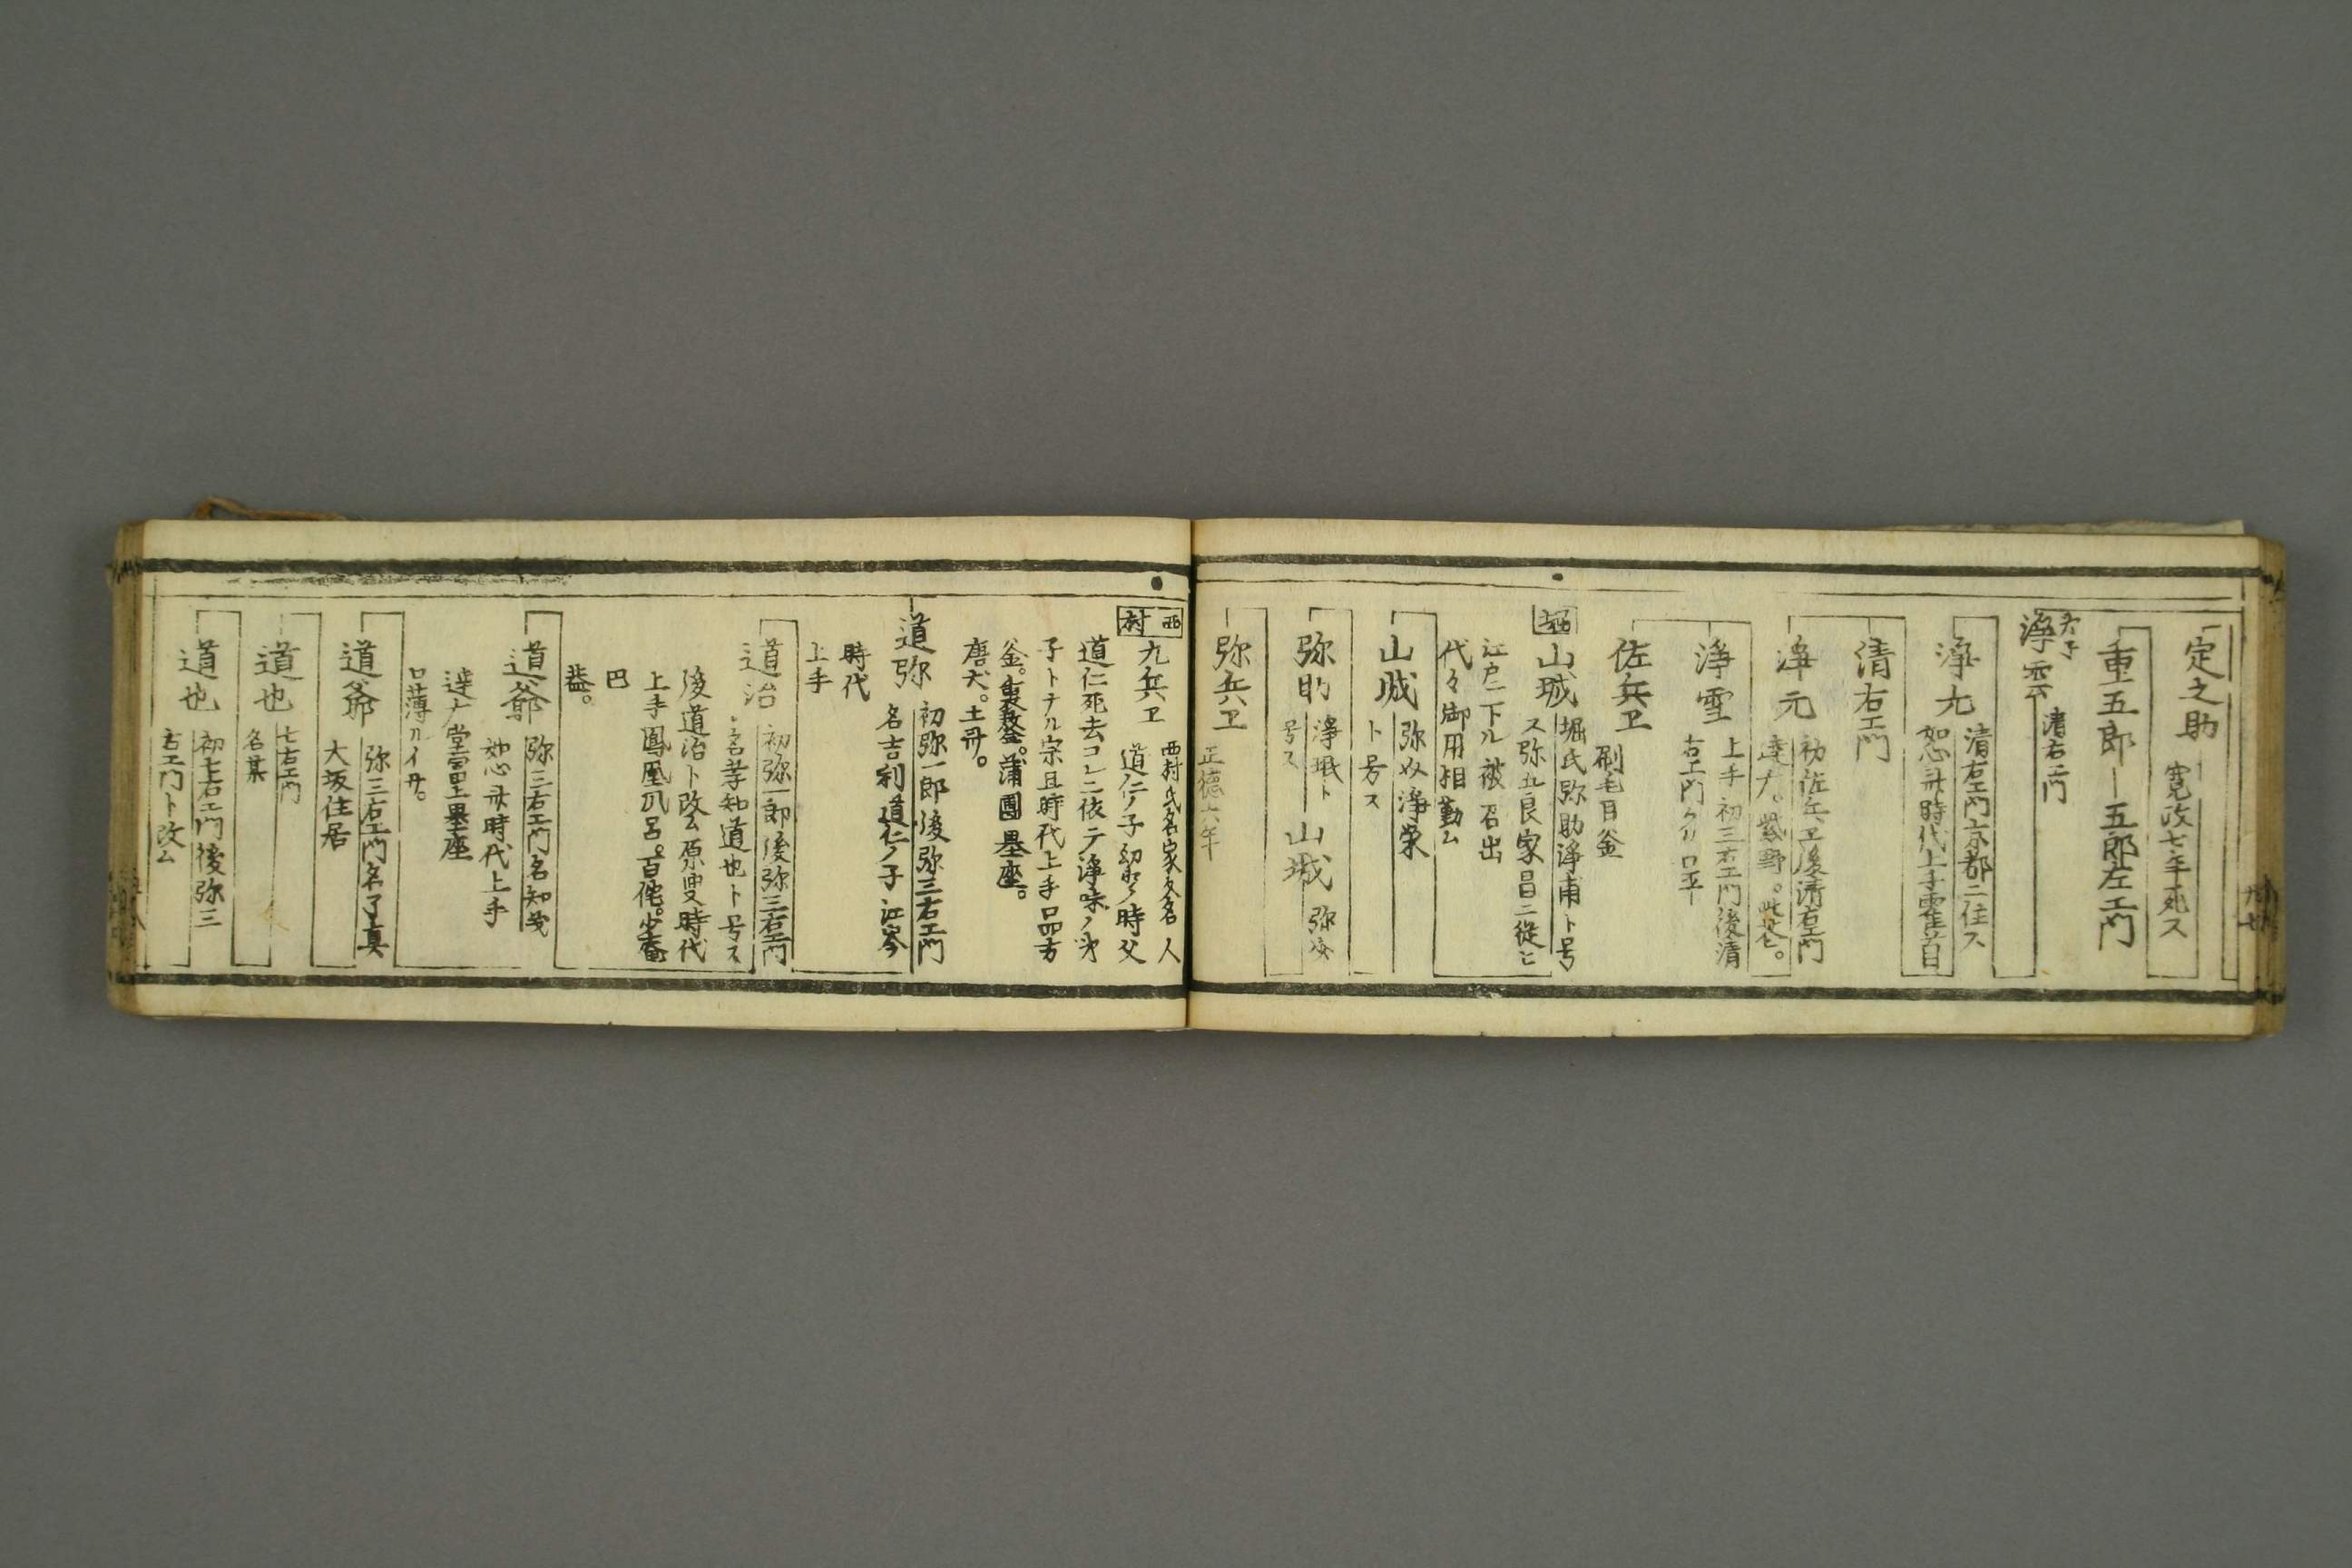 定之助
寛政七年死ス
重五郎
五郎左エ門
浄雲
清右エ門
浄九
清右エ門京都ニ住ス
如心斎時代上手霰首
清右エ門
浄元
初佐兵ヱ後清右エ門
達广。紫野。
浄雪
上手初三右エ門後清
右エ門
佐兵ヱ
刷毛目釜
堀
山城
堀氏弥助浄甫ト号
ス弥五良家昌ニ従ヒ
江戸ニ下ル被召出
代々御用相勤ム
山城
弥以浄栄
ト号ス
弥助
浄珉ト
号ス
山城
弥兵ヱ
正徳六年
西村
九兵ヱ
西村氏名家又名人
道仁ノ子幼少ノ時父
道仁死去コレニ依テ浄味ノ弟
子トナル宗旦時代上手品方
釜。裏鏊。蒲團。累座。
唐犬。土斎。
道弥
初弥一郎後弥三右エ門
名吉利道仁ノ子江岑
時代
上手
道治
初弥一郎後弥三右エ門
名孝知道也ト号ス
後道治ト改ム原叟時代
上手鳳凰風呂。百侘。少庵
巴
蓋。
道爺
弥三右エ門名知義
如心斎時代上手
達广堂宮累座
口薄ルイ斎。
道爺
弥三右エ門名了真
大坂住居
道也
七右エ門
名某
道也
初七右エ門後弥三
右エ門ト改ム